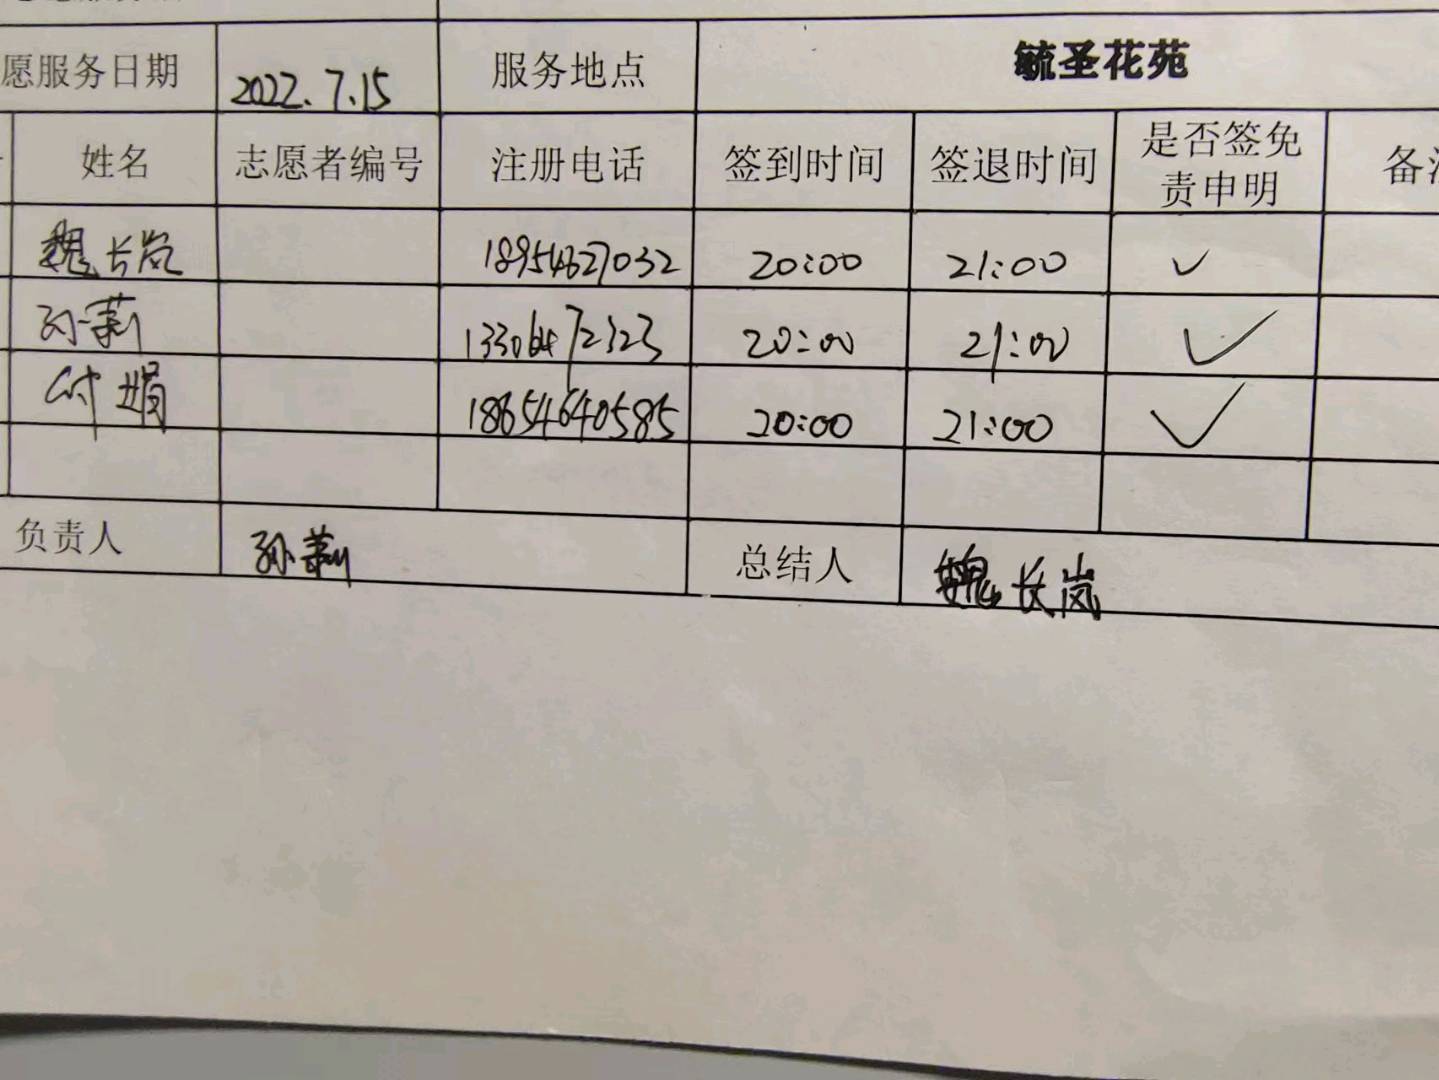 愿服务日期 2022.7.15 服务地点 毓圣花苑
姓名 志愿者编号 注册电话 签到时间 签退时间 是否签免责申明 备注
魏长岚 18954627032 20:00 21:00 ✓
孙莉 13306472323 20:00 21:00 ✓
付娟 18654640585 20:00 21:00 ✓
负责人 孙莉 总结人 魏长岚